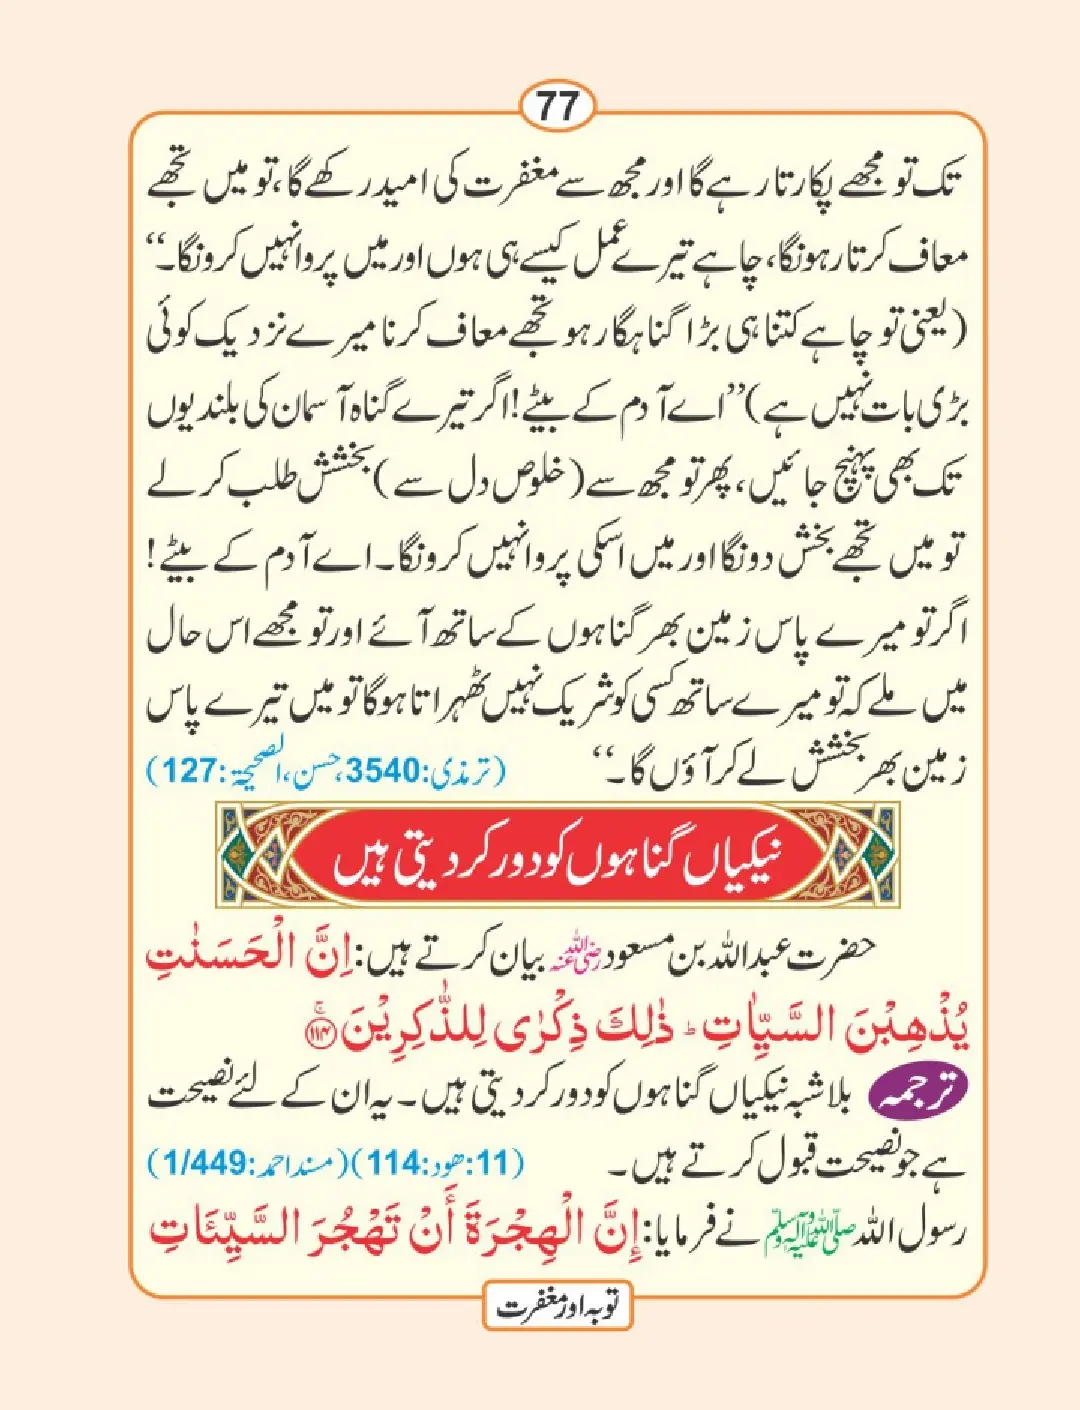 77
تک تو مجھے پکارتا رہے گا اور مجھ سے مغفرت کی امید رکھے گا، تو میں تجھے
معاف کرتا رہونگا، چاہے تیرے عمل کیسے ہی ہوں اور میں پروا نہیں کرونگا۔‘‘
(یعنی تو چاہے کتنا ہی بڑا گناہگار ہو تجھے معاف کرنا میرے نزدیک کوئی
بڑی بات نہیں ہے) ’’اے آدم کے بیٹے! اگر تیرے گناہ آسمان کی بلندیوں
تک بھی پہنچ جائیں، پھر تو مجھ سے (خلوص دل سے) بخشش طلب کرلے
تو میں تجھے بخش دونگا اور میں اسکی پروا نہیں کرونگا۔ اے آدم کے بیٹے!
اگر تو میرے پاس زمین بھر گناہوں کے ساتھ آئے اور تو مجھے اس حال
میں ملے کہ تو میرے ساتھ کسی کو شریک نہیں ٹھہراتا ہوگا تو میں تیرے پاس
زمین بھر بخشش لے کر آؤں گا۔‘‘ (ترمذی:3540، حسن، الصحیحۃ:127)
نیکیاں گناہوں کو دور کر دیتی ہیں
حضرت عبداللہ بن مسعود رضی اللہ عنہ بیان کرتے ہیں: اِنَّ الْحَسَنٰتِ
یُذْهِبْنَ السَّیِّاٰتِ ؕ ذٰلِكَ ذِكْرٰی لِلذّٰكِرِیْنَ ۚ﴿۱۱۴﴾
ترجمہ بلاشبہ نیکیاں گناہوں کو دور کر دیتی ہیں۔ یہ ان کے لئے نصیحت
ہے جو نصیحت قبول کرتے ہیں۔ (11:ھود:114) (مسند احمد:1/449)
رسول اللہ صلی اللہ علیہ وآلہ وسلم نے فرمایا: إِنَّ الْهِجْرَةَ أَنْ تَهْجُرَ السَّيِّئَاتِ
توبہ اور مغفرت